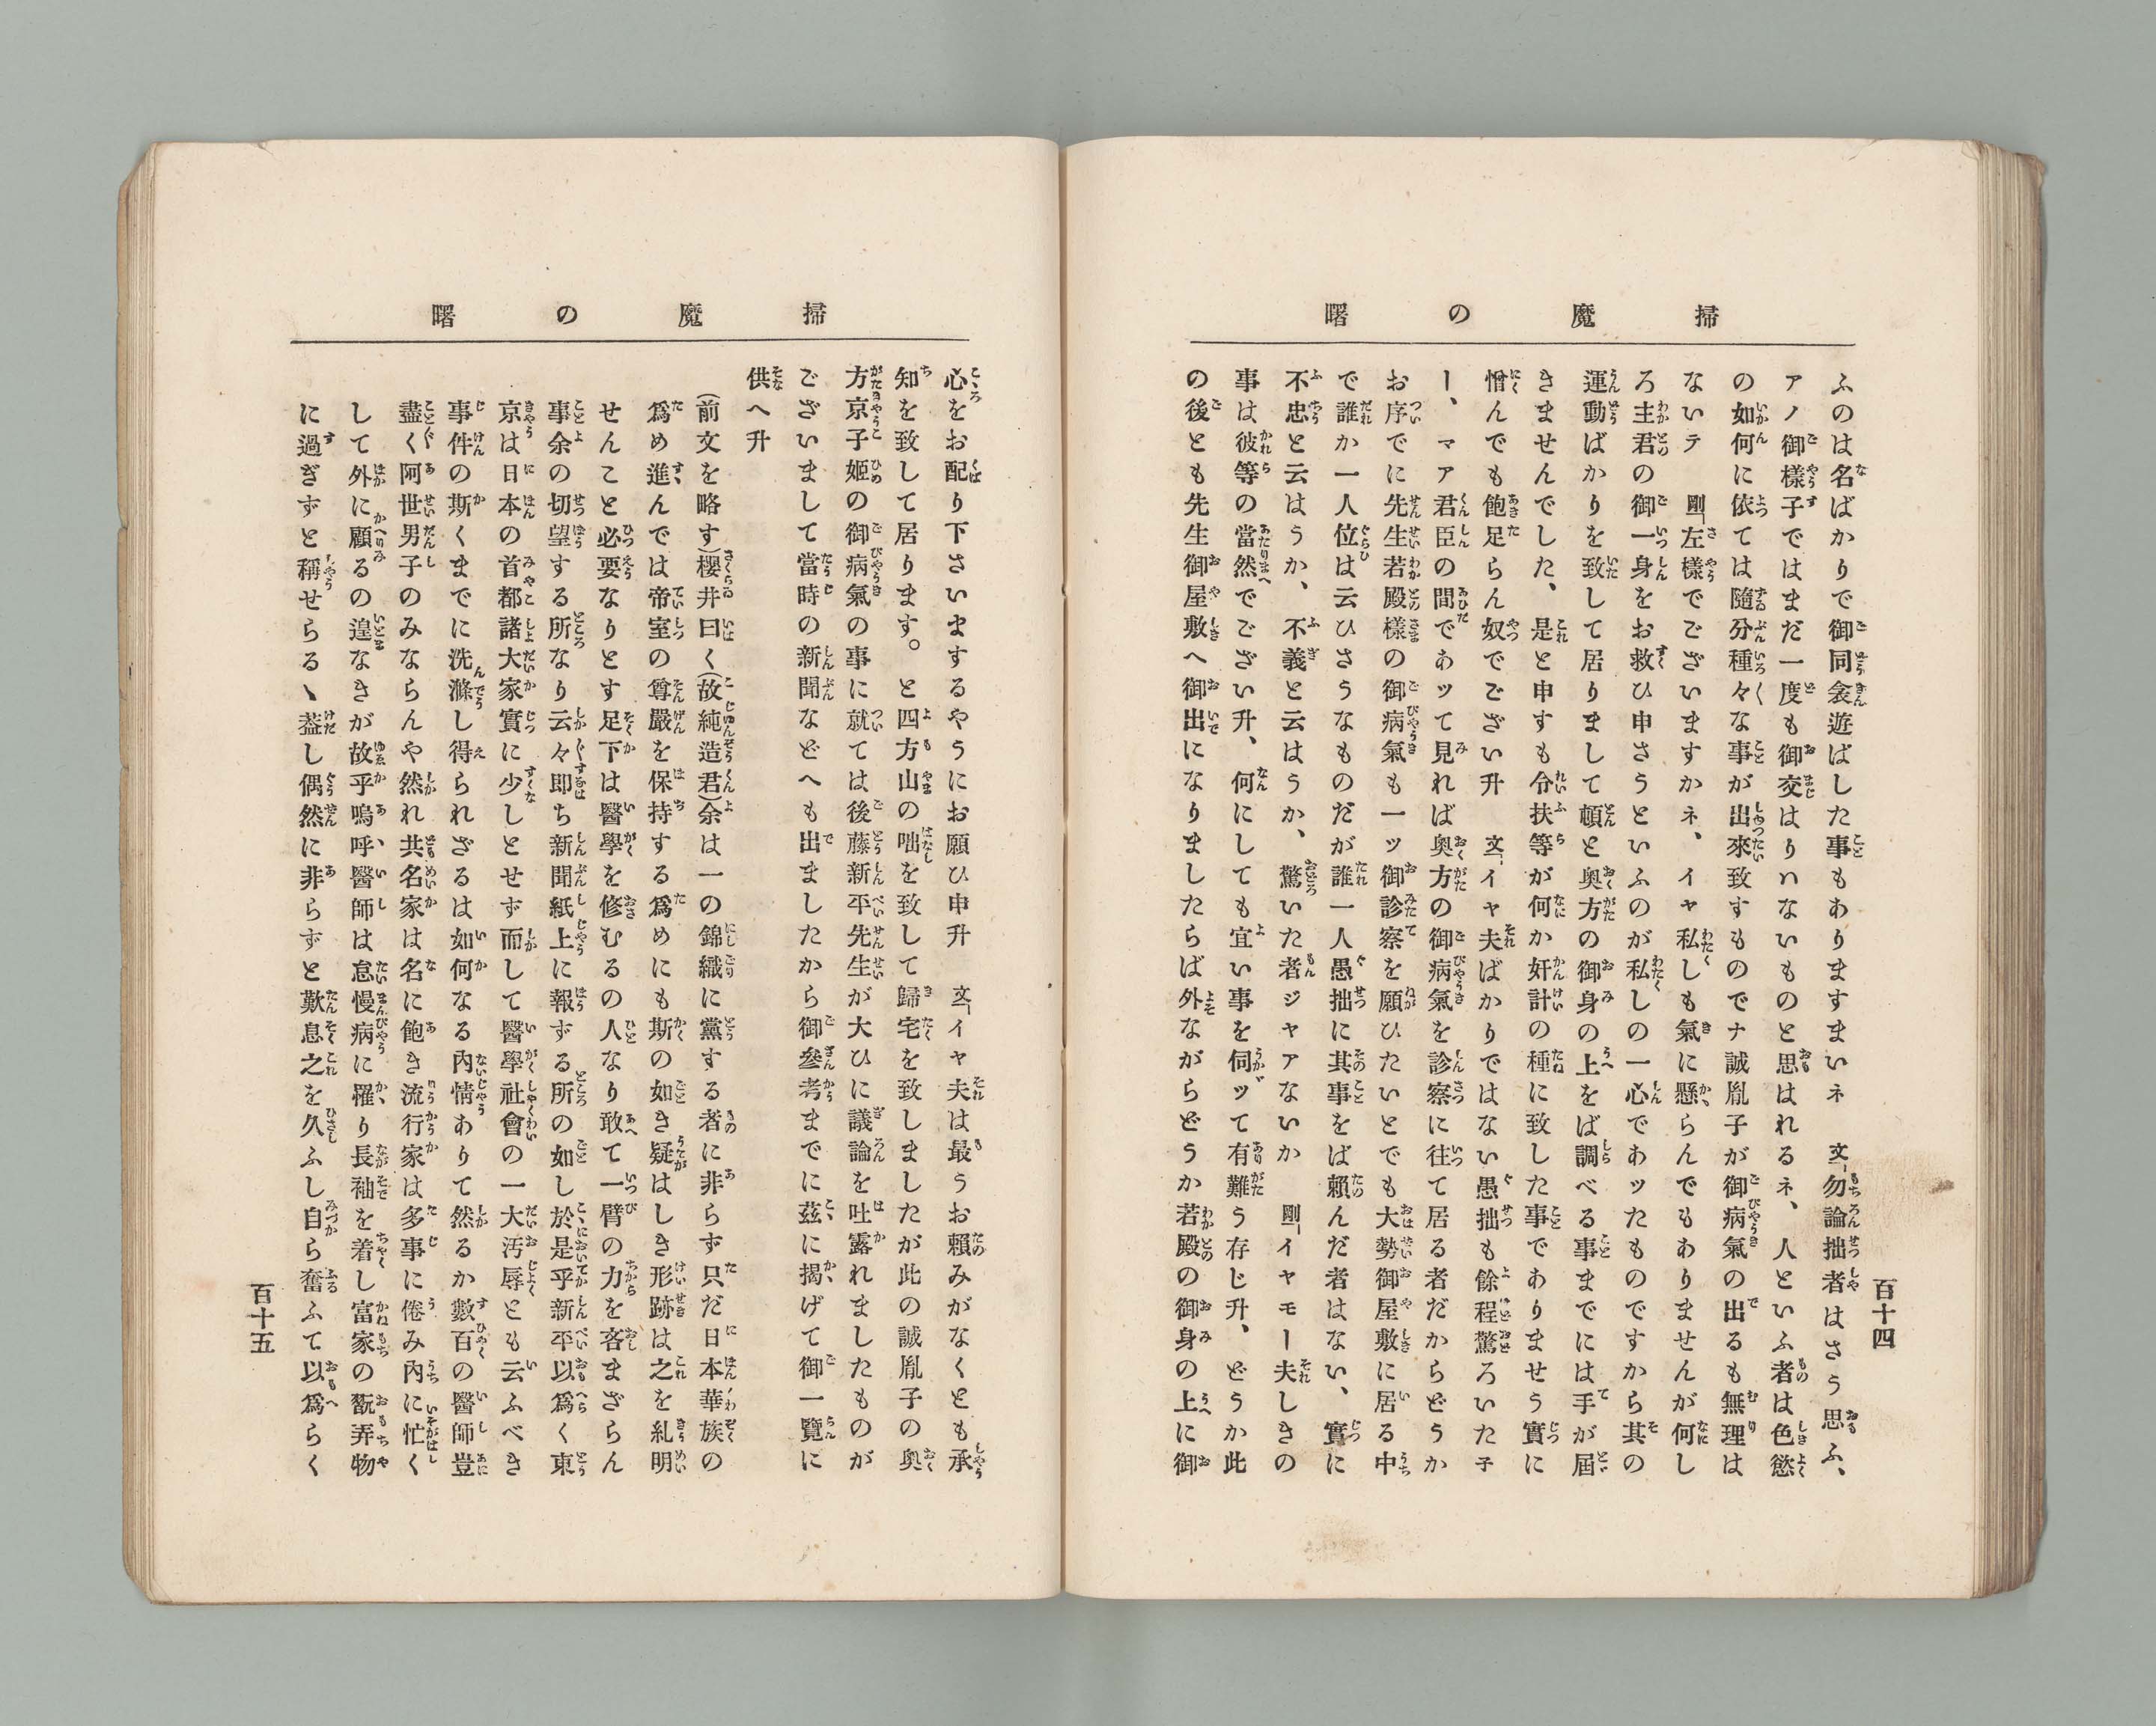 掃魔の曙
ふのは名ばかりで御同衾遊ばした事もありますまいネ　文「勿論拙者はさう思ふ、
アノ御様子ではまだ一度も御交はりハないものと思はれるネ、人といふ者は色慾
の如何に依ては隨分種々な事が出來致すものでナ誠胤子が御病氣の出るも無理は
ないテ　剛「左樣でございますかネ、イヤ私しも氣に懸らんでもありませんが何し
ろ主君の御一身をお救ひ申さうといふのが私しの一心であッたものですから其の
運動ばかりを致して居りまして頓と奥方の御身の上をば調べる事までには手が屆
きませんでした、是と申すも令扶等が何か奸計の種に致した事でありませう實に
憎んでも飽足らん奴でござい升　文「イャ夫ばかりではない愚拙も餘程驚ろいた子
ー、マア君臣の間であッて見れば奥方の御病氣を診察に往て居る者だからどうか
お序でに先生若殿様の御病氣も一ッ御診察を願ひたいとでも大勢御屋敷に居る中
で誰か一人位は云ひさうなものだが誰一人愚拙に其事をば賴んだ者はない、實に
不忠と云はうか、不義と云はうか、驚いた者ジャアないか　剛「イヤモー夫しきの
事は彼等の當然でござい升、何にしても宜い事を伺ッて有難う存じ升、どうか此
の後とも先生御屋敷へ御出になりましたらば外ながらどうか若殿の御身の上に御
百十四
掃魔の曙
心をお配り下さいまするやうにお願ひ申升　文「イャ夫は最うお賴みがなくとも承
知を致して居ります。と四方山の咄を致して歸宅を致しましたが此の誠胤子の奥
方京子姫の御病氣の事に就ては後藤新平先生が大ひに議論を吐露れましたものが
ございまして當時の新聞などへも出ましたから御參考までに茲に揭げて御一覽に
供へ升
(前文を略す)櫻井曰く(故純造君)余は一の錦織に黨する者に非らず只だ日本華族の
爲め進んでは帝室の尊嚴を保持する爲めにも斯の如き疑はしき形跡は之を糺明
せんこと必要なりとす足下は醫學を修むるの人なり敢て一臂の力を吝まざらん
事余の切望する所なり云々即ち新聞紙上に報ずる所の如し於是乎新平以爲く東
京は日本の首都諸大家實に少しとせず而して醫學社會の一大汚辱とも云ふべき
事件の斯くまでに洗滌し得られざるは如何なる內情ありて然るか數百の醫師豈
盡く阿世男子のみならんや然れ共名家は名に飽き流行家は多事に倦み內に忙く
して外に顧るの遑なきが故乎嗚呼、醫師は怠慢病に罹り長袖を着し富家の翫弄物
に過ぎずと稱せらるゝ蓋し偶然に非らずと歎息之を久ふし自ら奮ふて以爲らく
百十五